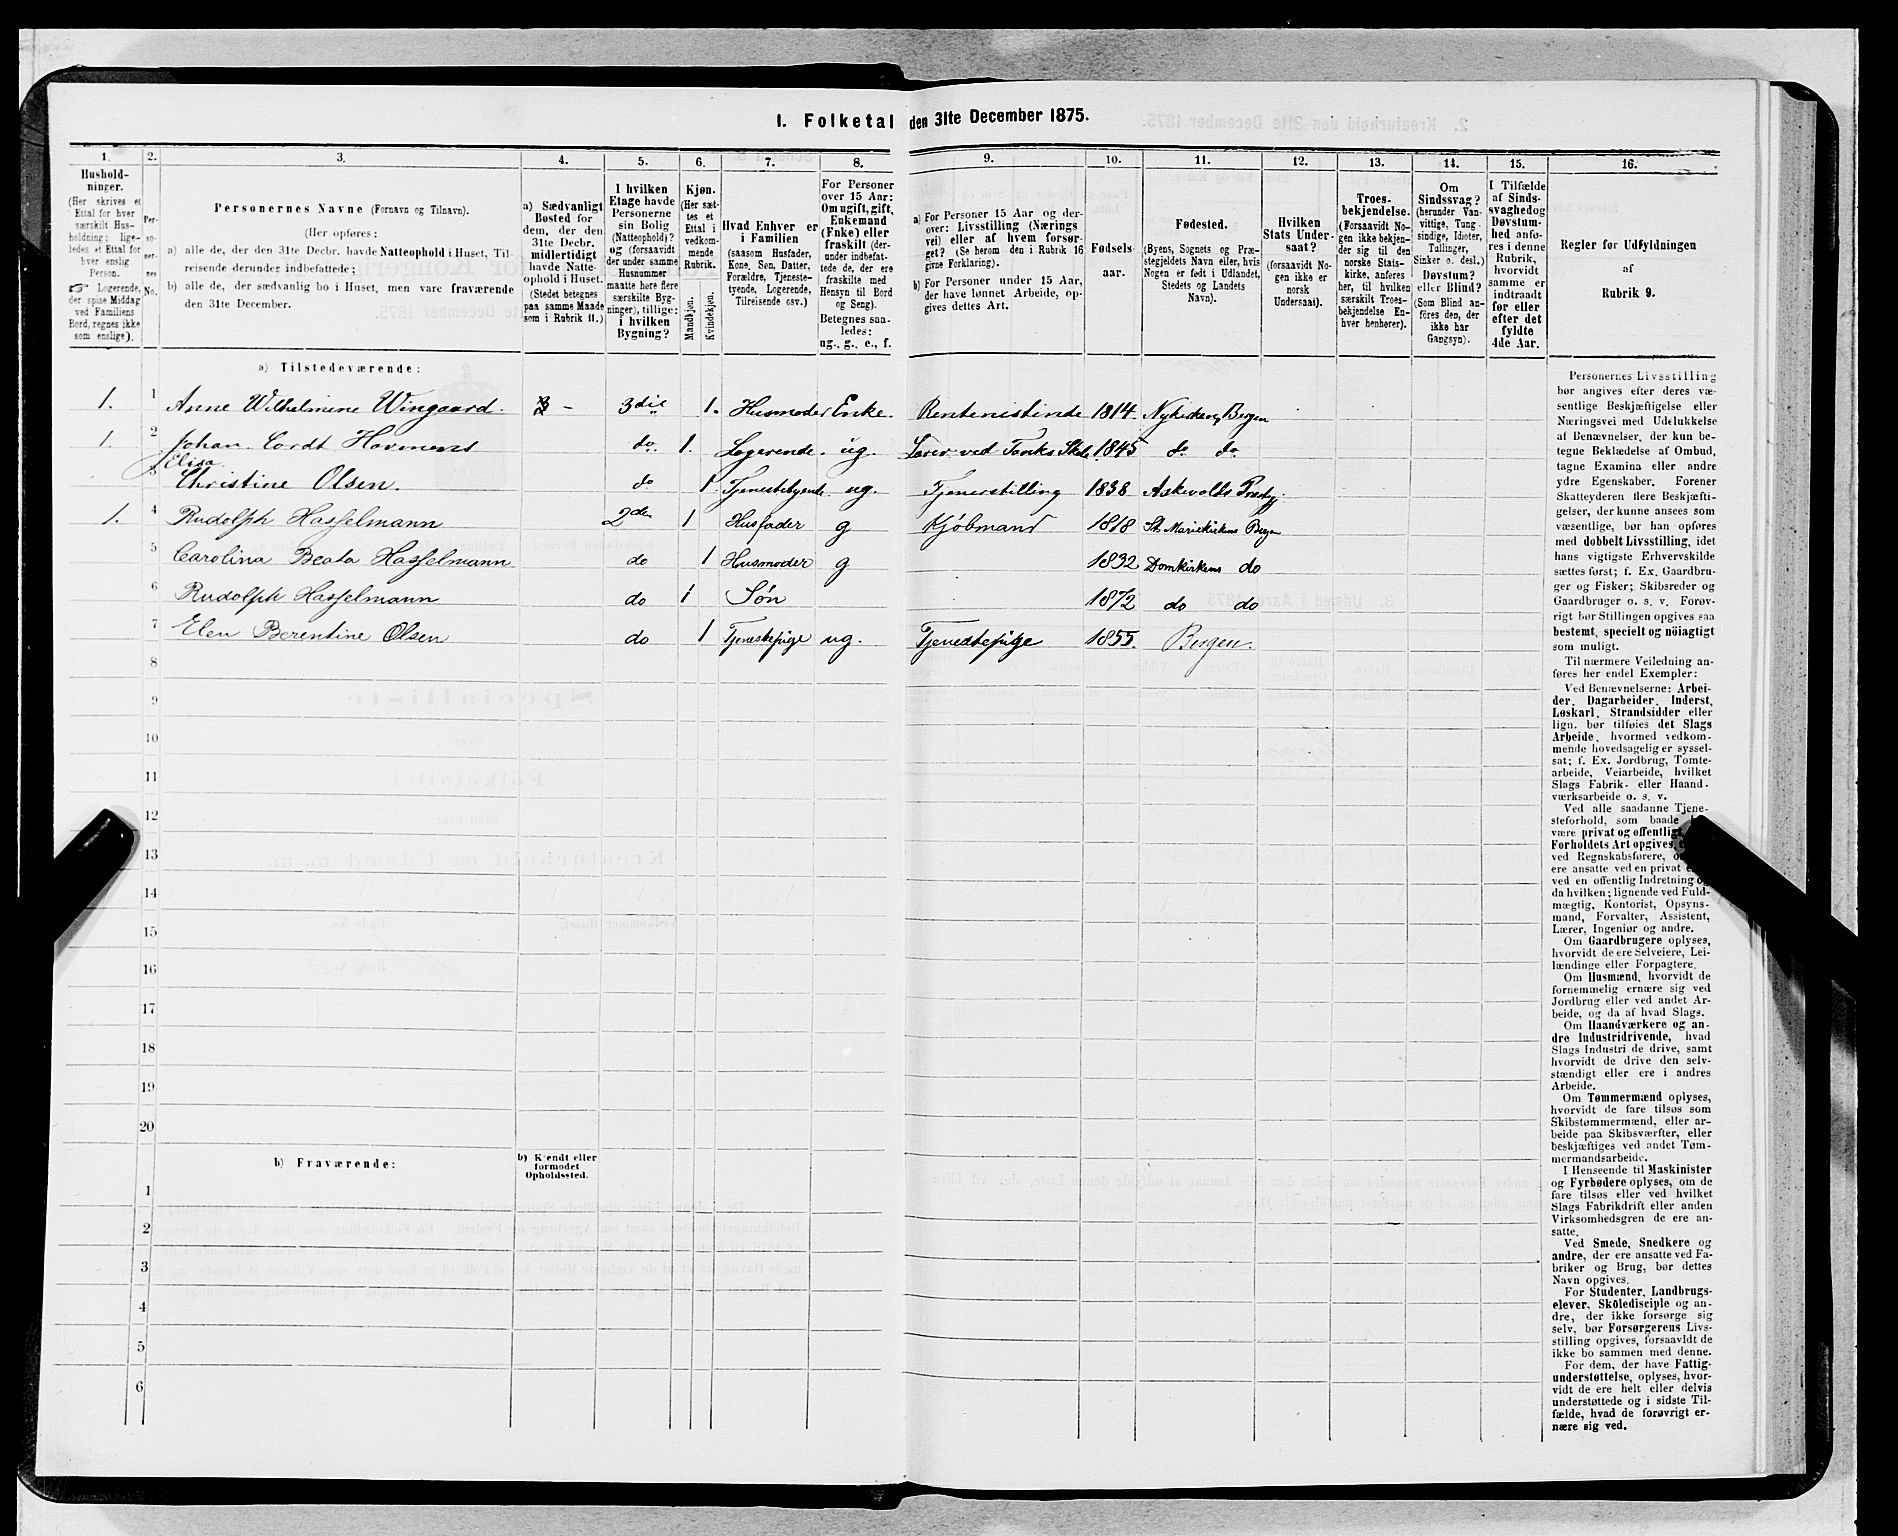 1. Folketal den 31te December 1875.
1. 2. 3. 4. 5. 6. 7. 8. 9. 10. 11. 12. 13. 14. 15. 16.
Hushold-
ninger.
(Her skrives et
Ettal for hver
særskilt Hus-
holdning; lige-
ledes et Ettal for
hver enslig
Person.
☞ Logerende,
der spise Middag
ved Familiens
Bord, regnes ikke
som enslige).
Per-
so-
ner-
nes
No.
Personernes Navne (Fornavn og Tilnavn).
(Her opføres:
a) alle de, der den 31te Decbr. havde Natteophold i Huset, Til-
reisende derunder indbefattede;
b) alle de, der sædvanlig bo i Huset, men vare fraværende
den 31te December.
a) Sædvanligt
Bosted for
dem, der den
31te Decbr.
midlertidigt
havde Natte-
ophold i Huset.
(Stedet betegnes
paa samme Maade
som i Rubrik 11.)
I hvilken
Etage havde
Personerne
sin Bolig
(Natteophold)?
og (forsaavidt
der under samme
Husnummer
maatte høre flere
særskilte Byg-
ninger), tillige:
i hvilken
Bygning?
Kjøn.
(Her sæt-
tes et
Ettal i
vedkom-
mende
Rubrik.
Mandkjøn.
Kvindekjøn.
Hvad Enhver er
i Familien
(saasom Husfader,
Kone, Søn, Datter,
Forældre, Tjeneste-
tyende, Logerende,
Tilreisende osv.)
For Personer
over 15 Aar:
Om ugift, gift,
Enkemand
(Enke) eller
fraskilt (der-
under indbefat-
tede de, der ere
fraskilte med
Hensyn til Bord
og Seng).
Betegnes saa-
ledes:
ug., g., e., f.
a) For Personer 15 Aar og der-
over: Livsstilling (Nærings
vei) eller af hvem forsør-
get? (Se herom den i Rubrik 16
givne Forklaring).
b) For Personer under 15 Aar,
der have lønnet Arbeide, op-
gives dettes Art.
Fødsels
aar.
Fødested.
(Byens, Sognets og Præ-
stegjeldets Navn eller, hvis
Nogen er født i Udlandet,
Stedets og Landets
Navn).
Hvilken
Stats Under-
saat?
(forsaavidt No-
gen ikke er
norsk
Undersaat).
Troes-
bekjendelse.
(Forsaavidt No-
gen ikke bekjen-
der sig til den
norske Stats-
kirke, anføres
her, til hvilken
særskilt Troes-
bekjendelse En-
hver henhører).
Om
Sindssvag?
(herunder Van-
vittige, Tung-
sindige, Idioter,
Tullinger,
Sinker o. desl.)
Døvstum?
eller Blind?
(Som Blind an-
føres den, der
ikke har
Gangsyn).
I Tilfælde
af Sinds-
svaghed og
Døvstum-
hed anfø-
res i denne
Rubrik,
hvorvidt
samme er
indtraadt
før eller
efter det
fyldte
4de Aar.
Regler for Udfyldningen
af
Rubrik 9.
a) Tilstedeværende:
1. 1 Anne Wilhelmine Wingaard. - 3die 1. Husmoder Enke. Rentenistinde 1814. Nykirken, Bergen
1. 2 Johan Cordt Harmens do. 1. Logerende. ug. Lærer ved Tanks Skole 1845 do do
Elisa
3 Christine Olsen. do 1. Tjenestetyende ug. Tjenerstilling 1838 Askevolds Præstgj.
1. 4 Rudolph Hasselmann 2den 1 Husfader g Kjøbmand 1818 St. Mariekirkens Bergen
5 Carolina Beata Hasselmann do 1 Husmoder g 1832 Domkirkens do
6 Rudolph Hasselmann do 1 Søn 1872 do do
7 Elen Berentine Olsen do 1 Tjenestepige ug. Tjenestepige 1855. Bergen.
8
9
10
11
12
13
14
15
16
17
18
19
20
b) Fraværende:
b) Kjendt eller
formodet
Opholdssted.
1
2
3
4
5
6
Personernes Livsstilling
bør angives efter deres væ-
sentlige Beskjæftigelse eller
Næringsvei med Udelukkelse
af Benævnelser, der kun be-
tegne Beklædelse af Ombud,
tagne Examina eller andre
ydre Egenskaber. Forener
Skatteyderen flere Beskjæfti-
gelser, der kunne ansees som
væsentlige, bør han opføres
med dobbelt Livsstilling, idet
hans vigtigste Erhvervskilde
sættes først; f. Ex. Gaardbru-
ger og Fisker; Skibsreder og
Gaardbruger o. s. v. Forøv-
rigt bør Stillingen opgives saa
bestemt, specielt og nöiagtigt
som muligt.
Til nærmere Veiledning an-
føres her endel Exempler:
Ved Benævnelserne: Arbei-
der, Dagarbeider, Inderst,
Løskarl, Strandsidder eller
lign. bør tilføies det Slags
Arbeide, hvormed vedkom-
mende hovedsagelig er syssel-
sat; f. Ex. Jordbrug, Tomte-
arbeide, Veiarbeide, hvilket
Slags Fabrik- eller Haand-
værksarbeide o. s. v.
Ved alle saadanne Tjene-
steforhold, som baade
være privat og offentligt,
Forholdets Art opgives,
ved Regnskabsførere,
ere ansatte ved en privat
ved en offentlig Indretning
da hvilken; lignende ved Fuld-
mægtig, Kontorist, Opsyns-
mand, Forvalter, Assistent,
Lærer, Ingeniør og andre.
Om Gaardbrugere oplyses,
hvorvidt de ere Selveiere, Lei-
lændinge eller Forpagtere.
Om Husmænd, hvorvidt de
fornemmelig ernære sig ved
Jordbrug eller ved andet Ar-
beide, og da af hvad Slags.
Om Haandværkere og an-
dre Industridrivende, hvad
Slags Industri de drive, samt
hvorvidt de drive den selv-
stændigt eller ere i andres
Arbeide.
Om Tømmermænd oplyses,
hvorvidt de fare tilsøs som
Skibstømmermænd, eller ar-
beide paa Skibsværfter, eller
beskjæftiges ved andet Tøm-
mermandsarbeide.
I Henseende til Maskinister
og Fyrbødere oplyses, om de
fare tilsøs eller ved hvilket
Slags Fabrikdrift eller anden
Virksomhedsgren de ere an-
satte.
Ved Smede, Snedkere og
andre, der ere ansatte ved Fa-
briker og Brug, bør dettes
Navn opgives.
For Studenter, Landbrugs-
elever, Skoledisciple og an-
dre, der ikke forsørge sig
selv, bør Forsørgerens Livs-
stilling opgives, forsaavidt de
ikke bo sammen med denne.
For dem, der have Fattig-
understøttelse, oplyses, hvor-
vidt de ere helt eller delvis
understøttede og i sidste Til-
fælde, hvad de forøvrigt er-
nære sig ved.